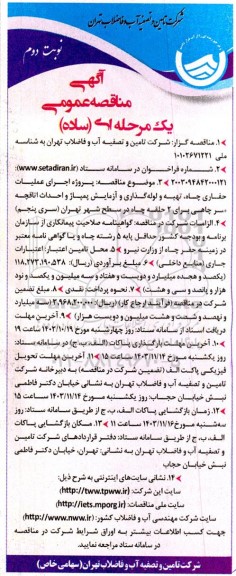 شرکت تامین و تصفیه آب و فاضلاب تهران
نوبت دوم
آگهی
مناقصه عمومی
یک مرحله ای (ساده)
۱. مناقصه گزار: شرکت تامین و تصفیه آب و فاضلاب تهران به شناسه
ملی ۱۰۱۰۲۶۷۱۲۲۱
۲. شماره فراخوان در سامانه ستاد (www.setadiran.ir):
۲۰۰۳۰۹۴۸۲۲۰۰۰۱۲۱ ۳. موضوع مناقصه: پروژه اجرای عملیات
حفاری چاه، تهیه و لوله‌گذاری و آزمایش پمپاژ و احداث اتاقچه
سر چاهی برای ۲ چاه در سطح شهر تهران (سری پنجم)
۴. الزامات متقاضی: گواهینامه صلاحیت پیمانکاری از سازمان
برنامه و بودجه کشور حداقل پایه ۵ رشته چاه و یا گواهی نامه معتبر
در زمینه حفر چاه از وزارت نیرو ۵. محل تامین اعتبار: اعتبارات
جاری (منابع داخلی) ۶. مبلغ برآوردی (ریال): ۱۱۸,۲۷۳,۱۹۰,۵۳۸
(یکصد و هجده میلیارد و دویست و هفتاد و سه میلیون و یکصد و نود
هزار و پانصد و سی و هشت) ۷. نحوه پرداخت نقدی ۸. مبلغ تضمین
شرکت در مناقصه (فرآیند ارجاع کار) (ریال): ۳,۹۶۸,۲۰۰,۰۰۰ (سه میلیارد
و نهصد و شصت و هشت میلیون و دویست هزار) ۹. آخرین مهلت
دریافت اسناد از سامانه ستاد: روز چهارشنبه مورخ ۱۴۰۳/۱۰/۱۹ ساعت ۱۹
۱۰. آخرین مهلت بارگذاری پاکات (الف، ب، ج) در سامانه ستاد:
روز یکشنبه مورخ ۱۴۰۳/۱۱/۱۴ ساعت ۱۵ ۱۱. آخرین مهلت تحویل
فیزیکی پاکت الف (تضمین شرکت در مناقصه) به دبیرخانه شرکت
تامین و تصفیه آب و فاضلاب تهران به نشانی خیابان دکتر فاطمی
نبش خیابان حجاب: روز یکشنبه مورخ ۱۴۰۳/۱۱/۱۴ ساعت ۱۵
۱۲. زمان بازگشایی پاکات الف، ب، ج از طریق سامانه ستاد: روز
سه‌شنبه مورخ ۱۴۰۳/۱۱/۱۶ ساعت ۱۱ ۱۳. مکان بازگشایی پاکات
الف، ب، ج از طریق سامانه ستاد: دفتر قراردادهای شرکت تامین
و تصفیه آب و فاضلاب تهران به نشانی: تهران، خیابان دکتر فاطمی
نبش خیابان حجاب
۱۴. نشانی سایت‌های اینترنتی به شرح ذیل:
سایت این شرکت: (http://tww.tpww.ir)
سایت ملی مناقصات: (http://iets.mporg.ir)
سایت شرکت مهندسی آب و فاضلاب کشور: (http://www.nww.ir)
جهت کسب اطلاعات بیشتر به اوراق شرایط شرکت در مناقصه
در سامانه ستاد مراجعه نمایید.
شرکت تامین و تصفیه آب و فاضلاب تهران (سهامی خاص)